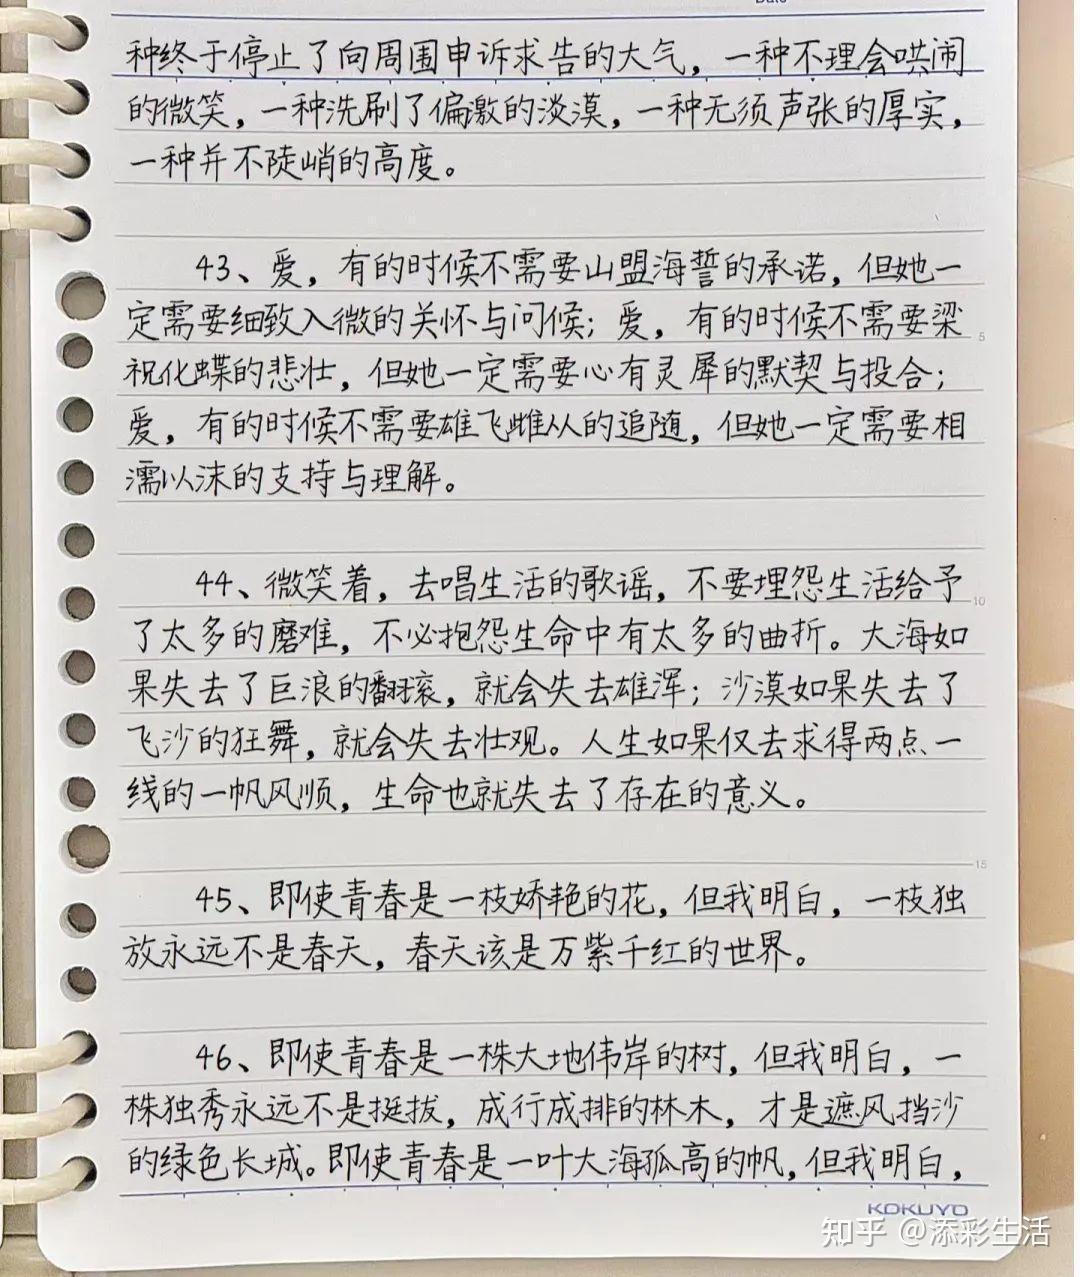 Date
种终于停止了向周围申诉求告的大气，一种不理会哄闹
的微笑，一种洗刷了偏激的淡漠，一种无须声张的厚实，
一种并不陡峭的高度。
43、爱，有的时候不需要山盟海誓的承诺，但她一
定需要细致入微的关怀与问候；爱，有的时候不需要梁
祝化蝶的悲壮，但她一定需要心有灵犀的默契与投合；
爱，有的时候不需要雄飞雌从的追随，但她一定需要相
濡以沫的支持与理解。
44、微笑着，去唱生活的歌谣，不要埋怨生活给予
了太多的磨难，不必抱怨生命中有太多的曲折。大海如
果失去了巨浪的翻滚，就会失去雄浑；沙漠如果失去了
飞沙的狂舞，就会失去壮观。人生如果仅去求得两点一
线的一帆风顺，生命也就失去了存在的意义。
45、即使青春是一枝娇艳的花，但我明白，一枝独
放永远不是春天，春天该是万紫千红的世界。
46、即使青春是一株大地伟岸的树，但我明白，一
株独秀永远不是挺拔，成行成排的林木，才是遮风挡沙
的绿色长城。即使青春是一叶大海孤高的帆，但我明白，
5
10
15
KOKUYO
知乎 @添彩生活